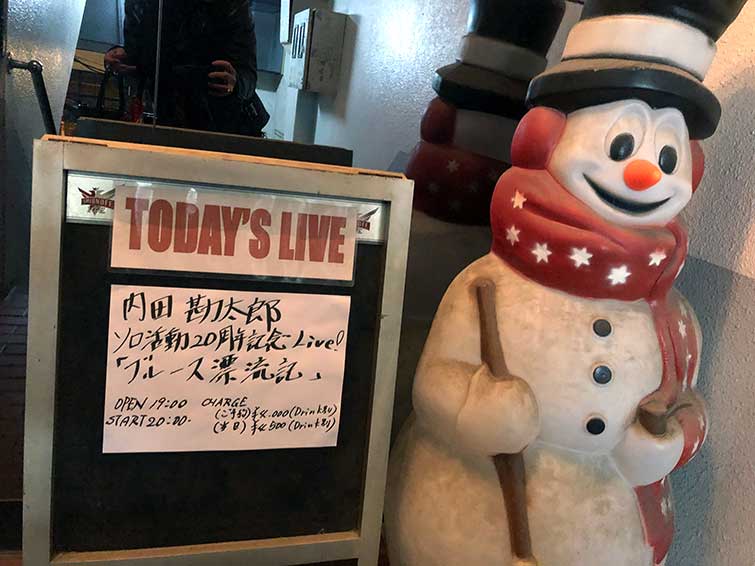 TODAY'S LIVE
内田 勘太郎
ソロ活動20周年記念Live!
「ブルース漂流記」
OPEN 19:00 CHARGE
(ご予約)¥4.000(Drink別)
START 20:00. (当日)¥4500(Drink別)